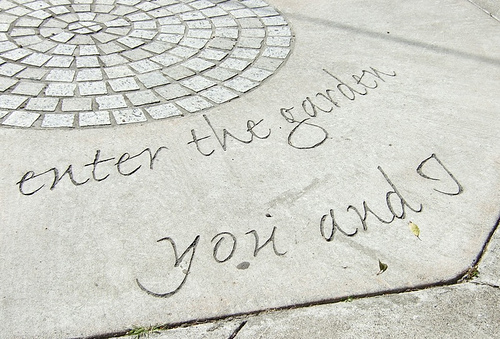 enter the garden
you and I